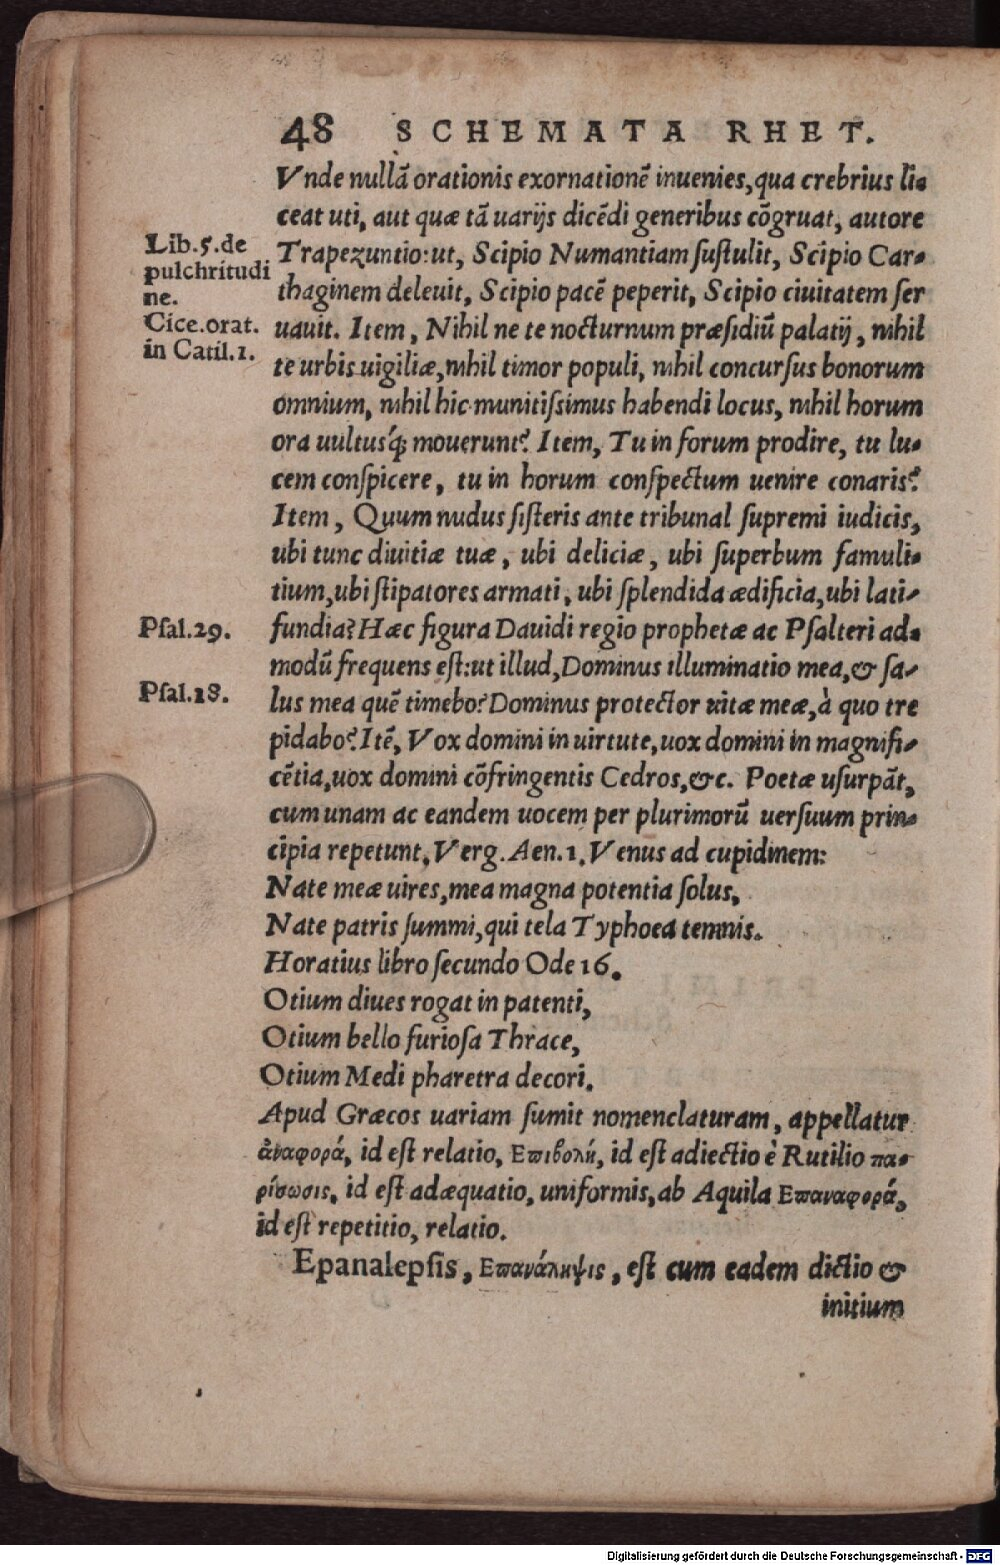 48 SCHEMATA RHET.
Vnde nullã orationis exornationẽ inuenies, qua crebrius li-
ceat uti, aut quæ tã uarijs dicẽdi generibus cõgruat, autore
Lib.5.de
pulchritudi
ne.
Trapezuntio: ut, Scipio Numantiam ſuſtulit, Scipio Car-
thaginem deleuit, Scipio pacẽ peperit, Scipio ciuitatem ſer
Cice.orat.
in Catil.1.
uauit. Item, Nihil ne te nocturnum præſidiũ palatij, nihil
te urbis uigiliæ, nihil timor populi, nihil concurſus bonorum
omnium, nihil hic munitiſsimus habendi locus, nihil horum
ora uultusq́; mouerunt? Item, Tu in forum prodire, tu lu-
cem conſpicere, tu in horum conſpectum uenire conaris?
Item, Quum nudus ſiſteris ante tribunal ſupremi iudicis,
ubi tunc diuitiæ tuæ, ubi deliciæ, ubi ſuperbum famuli-
tium, ubi ſtipatores armati, ubi ſplendida ædificia, ubi lati-
Pſal.29.
fundia? Hæc figura Dauidi regio prophetæ ac Pſalteri ad-
modũ frequens eſt: ut illud, Dominus illuminatio mea, & ſa-
Pſal.18.
lus mea quẽ timebo? Dominus protector uitæ meæ, à quo tre
pidabo? Itẽ, Vox domini in uirtute, uox domini in magnifi-
cẽtia, uox domini cõfringentis Cedros, &c. Poetæ uſurpãt,
cum unam ac eandem uocem per plurimorũ uerſuum prin-
cipia repetunt, Verg. Aen.1. Venus ad cupidinem:
Nate meæ uires, mea magna potentia ſolus,
Nate patris ſummi, qui tela Typhoea temnis.
Horatius libro ſecundo Ode 16.
Otium diues rogat in patenti,
Otium bello furioſa Thrace,
Otium Medi pharetra decori.
Apud Græcos uariam ſumit nomenclaturam, appellatur
ἀναφορά, id eſt relatio, Επιβολή, id eſt adiectio è Rutilio πα-
ρίσωσις, id eſt adæquatio, uniformis, ab Aquila Επαναφορά,
id eſt repetitio, relatio.
Epanalepſis, Επανάληψις, eſt cum eadem dictio &
initium
Digitalisierung gefördert durch die Deutsche Forschungsgemeinschaft - DFG